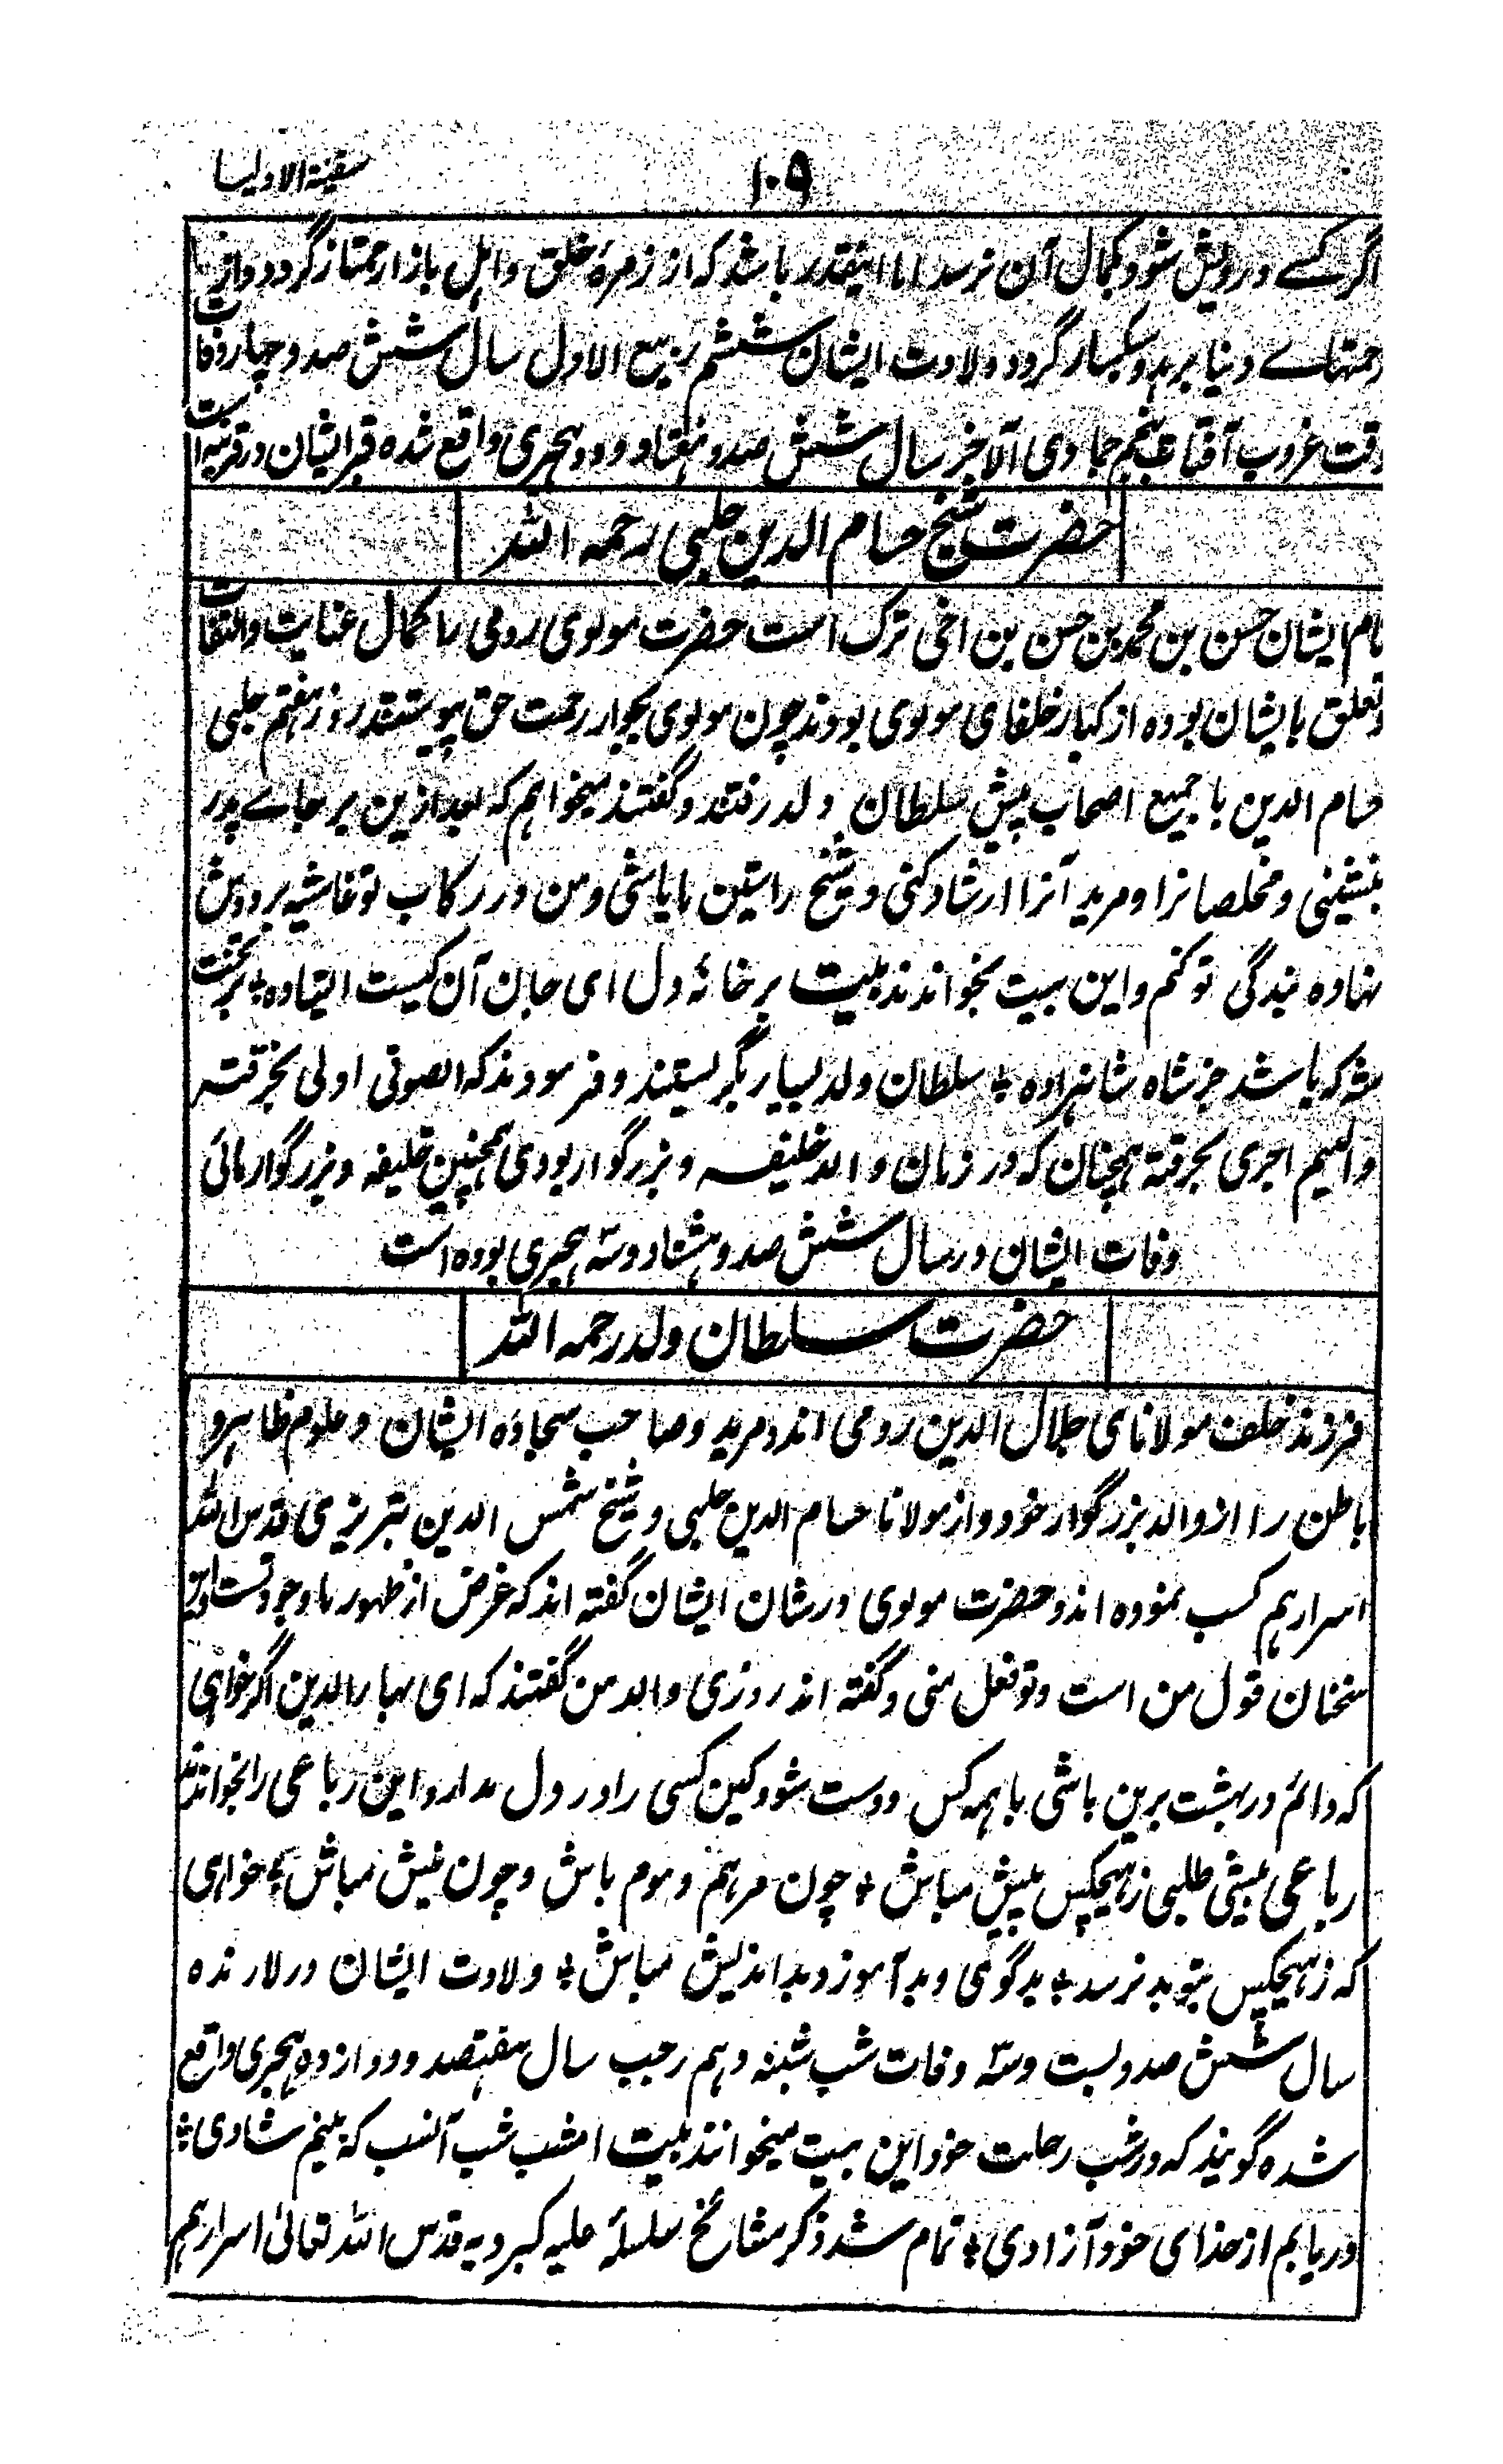 سفینة الاولیا
۱۰۹
اگر کسے درویش شود بکمال آن نرسد اما اینقدر باشد که از زمرهٔ خلق و اهل بازار ممتاز گردد و از
زحمتهاے دنیا برهد و سبکسار گردد ولادت ایشان ششم ربیع الاول سال شش صد و چهار وفات
وقت غروب آفتاب پنجم جمادی الآخر سال شش صد و هفتاد و دو هجری واقع شده قبر ایشان در قونیه است
حضرت شیخ حسام الدین چلپی رحمه الله
نام ایشان حسن بن محمد بن حسن بن اخی ترک است حضرت مولوی رومی را کمال عنایت و التفات
و تعلق بایشان بوده از کبار خلفای مولوی بودند چون مولوی بجوار رحمت حق پیوستند روز هفتم چلپی
حسام الدین با جمیع اصحاب پیش سلطان ولد رفتند و گفتند میخواهم که بعد ازین بر جاے پدر
بنشینی و مخلصانرا و مریدانرا ارشاد کنی و شیخ راستین ما باشی و من در رکاب تو غاشیه بر دوش
نهاده بندگی تو کنم و این بیت بخواندند بیت بر خانهٔ دل ای جان آن کیست ایستاده ٭ بر تخت
شه که باشد جز شاه شاهزاده ٭ سلطان ولد بسیار بگریستند و فرمودند که الصوفی اولی بخرقته
والیتیم احری بحرقته همچنان که در زمان والد خلیفه و بزرگوار بودی همچنین خلیفه و بزرگوار مائی
وفات ایشان در سال شش صد و هشتاد و سه هجری بوده است
حضرت سلطان ولد رحمه الله
فرزند خلف مولانای جلال الدین رومی اند و مرید و صاحب سجاده ایشان و علوم ظاهر و
باطن را از والد بزرگوار خود و از مولانا حسام الدین چلپی و شیخ شمس الدین تبریزی قدس الله
اسرارهم کسب نموده اند و حضرت مولوی در شان ایشان گفته اند که غرض از ظهور ما وجود تست این
سخنان قول من است و تو فعل منی و گفته اند روزی والد من گفتند که ای بهاء الدین اگر خواهی
که دائم در بهشت برین باشی با همه کس دوست شو و کین کسی را در دل مدار و این رباعی را بخواندند
رباعی پیشی طلبی ز هیچکس پیش مباش ٭ چون مرهم و موم باش و چون نیش مباش ٭ خواهی
که ز هیچکس بتو بد نرسد ٭ بد گوی و بد آموز و بد اندیش مباش ٭ ولادت ایشان در لارنده
سال شش صد و بست و سه وفات شب شنبه دهم رجب سال هفتصد و دوازده هجری واقع
شده گویند که در شب رحلت خود این بیت میخوانند بیت امشب شب آنست که بینم شادی ٭
دریابم از خدای خود آزادی ٭ تمام شد ذکر مشائخ سلسلهٔ علیه کبرویه قدس الله تعالی اسرارهم